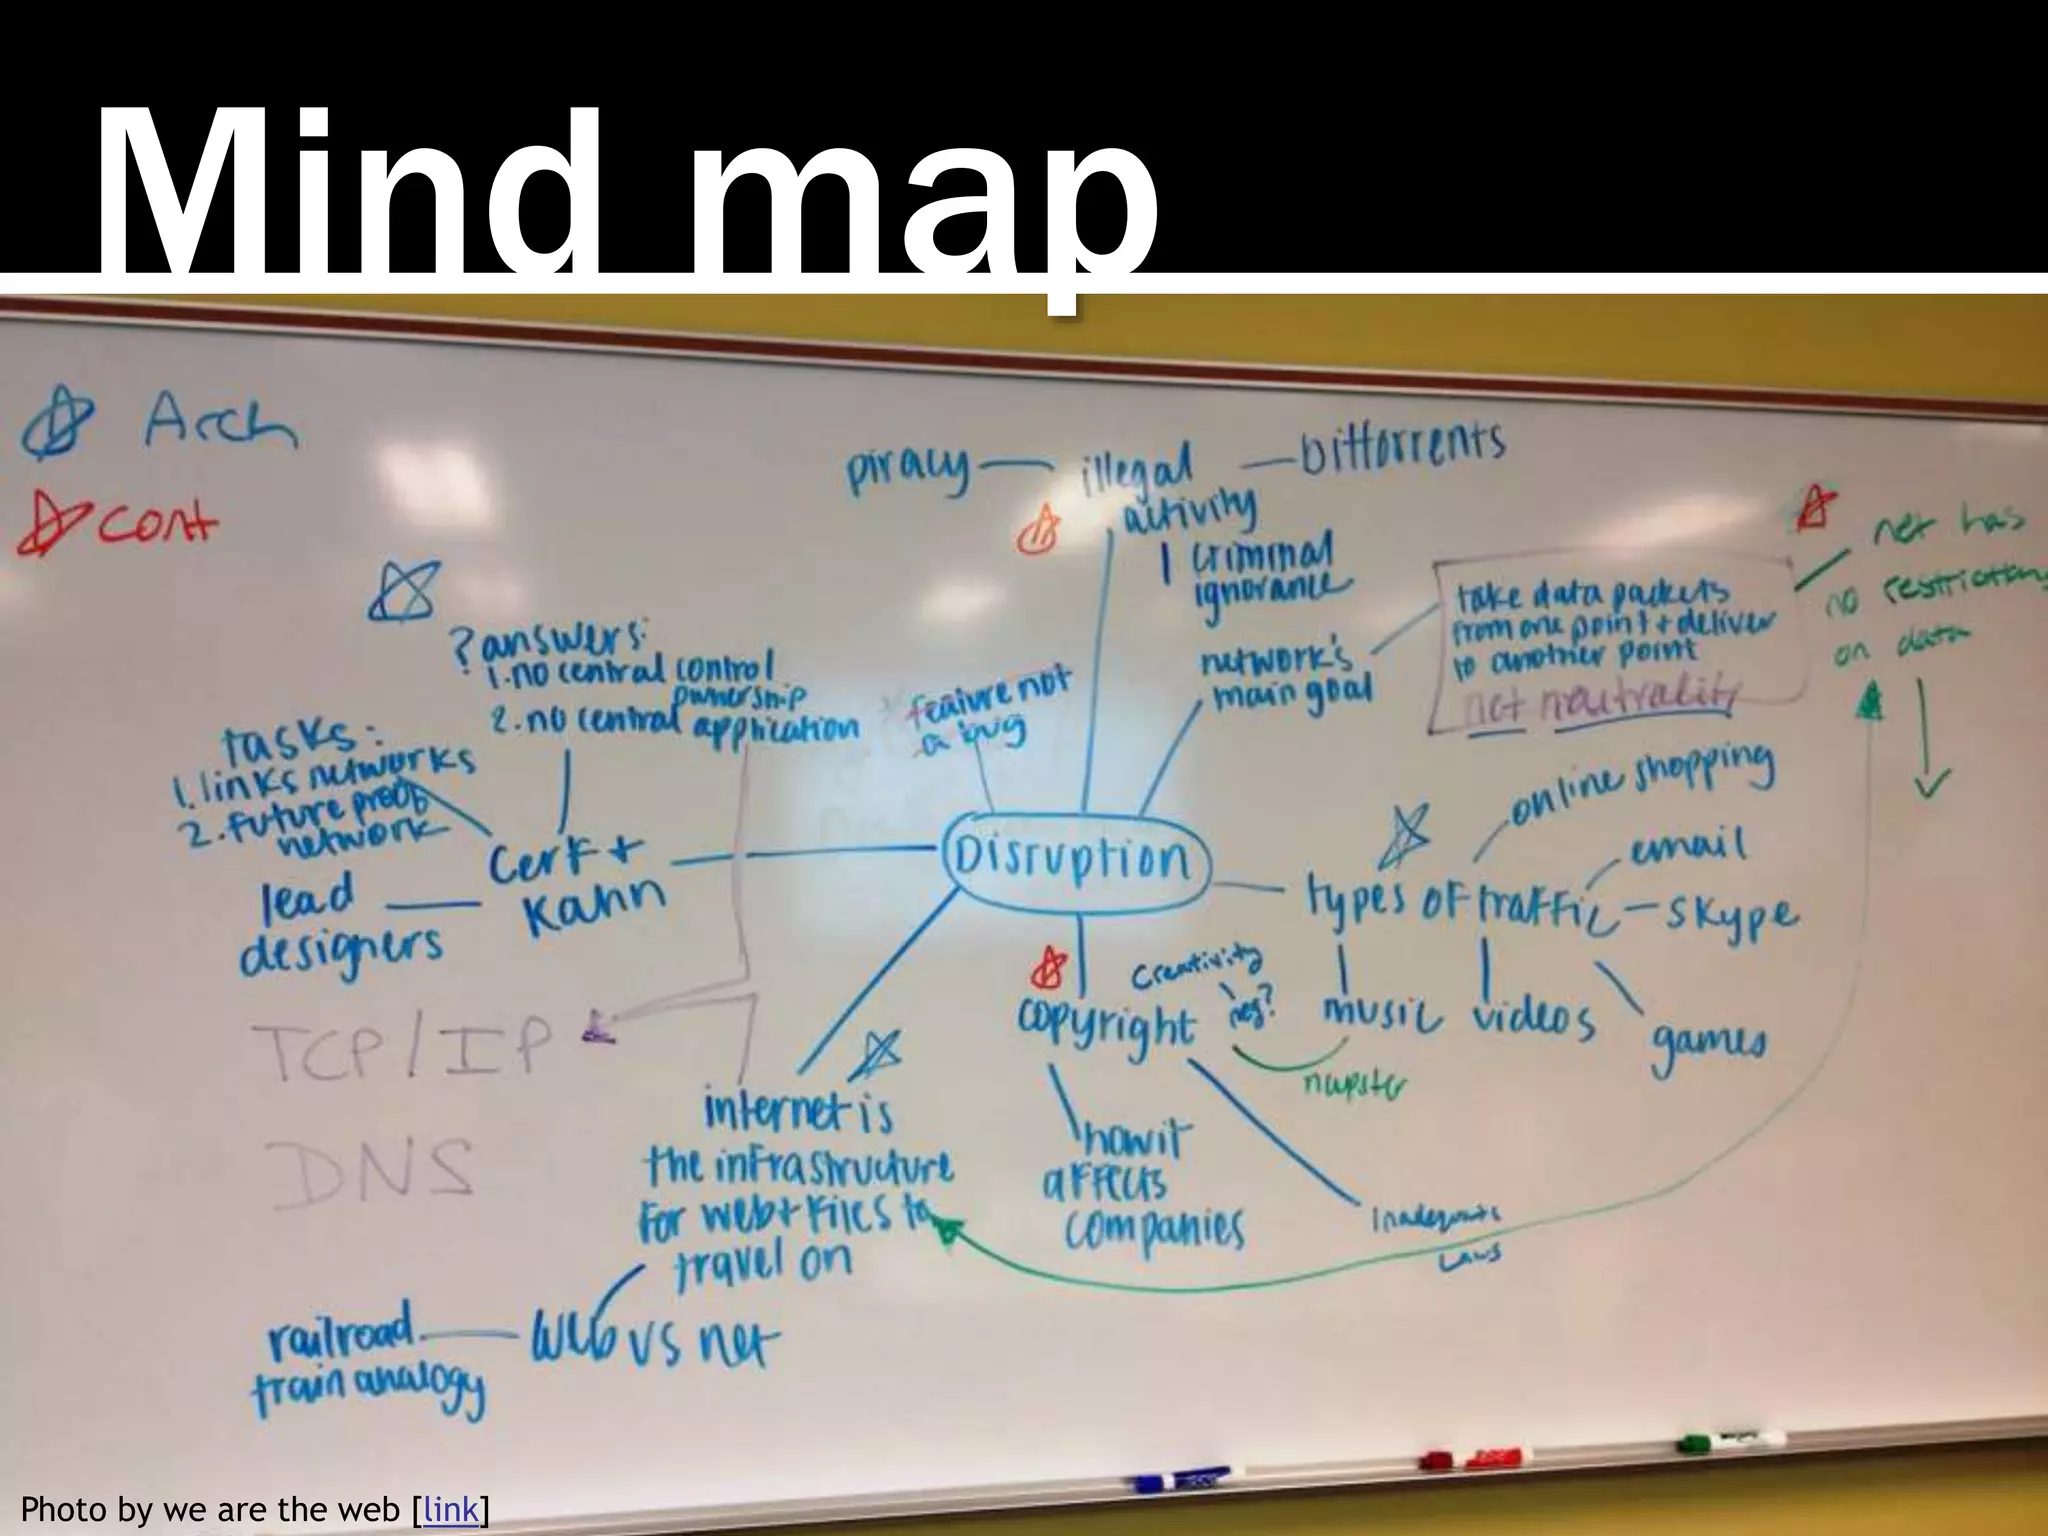 Mind map
Arch
cont
piracy
illegal
activity
bittorrents
criminal
ignorance
network's
main goal
take data packets
from one point + deliver
to another point
net neutrality
net has
no restrictions
on data
? answers:
1. no central control
ownership
2. no central application
tasks:
1. links networks
2. future proof
network
Cerf +
Kahn
lead
designers
feature not
a bug
Disruption
types of traffic
online shopping
email
skype
games
videos
music
napster
copyright
creativity
neg?
how it
affects
companies
Laws
TCP/IP
DNS
internet is
the infrastructure
for web + files to
travel on
web vs net
railroad
train analogy
Photo by we are the web [link]